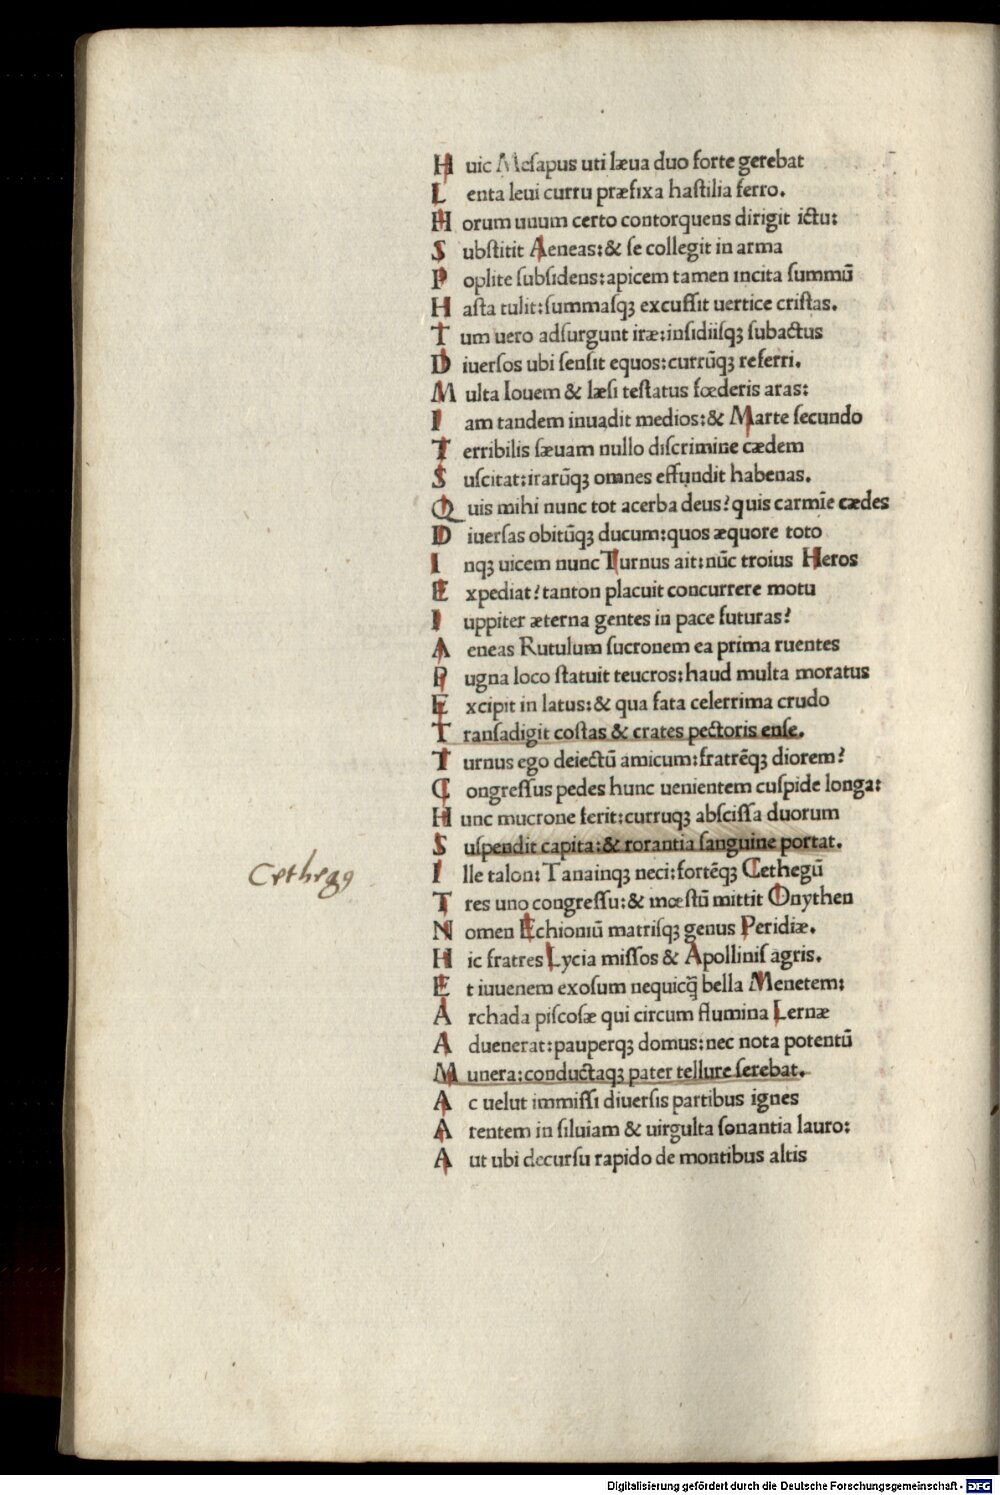 Huic Mesapus uti læua duo forte gerebat
Lenta leui curru præfixa haſtilia ferro.
Horum unum certo contorquens dirigit ictu:
Subſtitit Aeneas:& ſe collegit in arma
Poplite ſubſidens:apicem tamen incita ſummū
Haſta tulit:ſummaſqꝫ excuſſit uertice criſtas.
Tum uero adſurgunt iræ:inſidiiſqꝫ ſubactus
Diuerſos ubi ſenſit equos:currūqꝫ referri.
Multa Iouem & læſi teſtatus fœderis aras:
Iam tandem inuadit medios:& Marte ſecundo
Terribilis ſæuam nullo diſcrimine cædem
Suſcitat:irarūqꝫ omnes effundit habenas.
Quis mihi nunc tot acerba deus? quis carmīe cædes
Diuerſas obitūqꝫ ducum:quos æquore toto
Inqꝫ uicem nunc Turnus ait:nūc troius Heros
Expediat? tanton placuit concurrere motu
Iuppiter æterna gentes in pace futuras?
Aeneas Rutulum ſucronem ea prima ruentes
Pugna loco ſtatuit teucros:haud multa moratus
Excipit in latus:& qua fata celerrima crudo
Tranſadigit coſtas & crates pectoris enſe.
Turnus ego deiectū amicum:fratrēqꝫ diorem?
Congreſſus pedes hunc uenientem cuſpide longa:
Hunc mucrone ferit:curruqꝫ abſciſſa duorum
Suſpendit capita:& rorantia ſanguine portat.
Cethegꝯ
Ille talon: Tanainqꝫ neci:fortēqꝫ Cethegū
Tres uno congreſſu:& mœſtū mittit Onythen
Nomen Echioniū matriſqꝫ genus Peridiæ.
Hic fratres Lycia miſſos & Apolliniſ agris.
Et iuuenem exoſum nequicq̄ bella Menetem:
Archada piſcoſæ qui circum flumina Lernæ
Aduenerat:pauperqꝫ domus:nec nota potentū
Munera:conductaqꝫ pater tellure ſerebat.
Ac uelut immiſſi diuerſis partibus ignes
Arentem in ſiluiam & uirgulta ſonantia lauro:
Aut ubi decurſu rapido de montibus altis
Digitalisierung gefördert durch die Deutsche Forschungsgemeinschaft - DFG